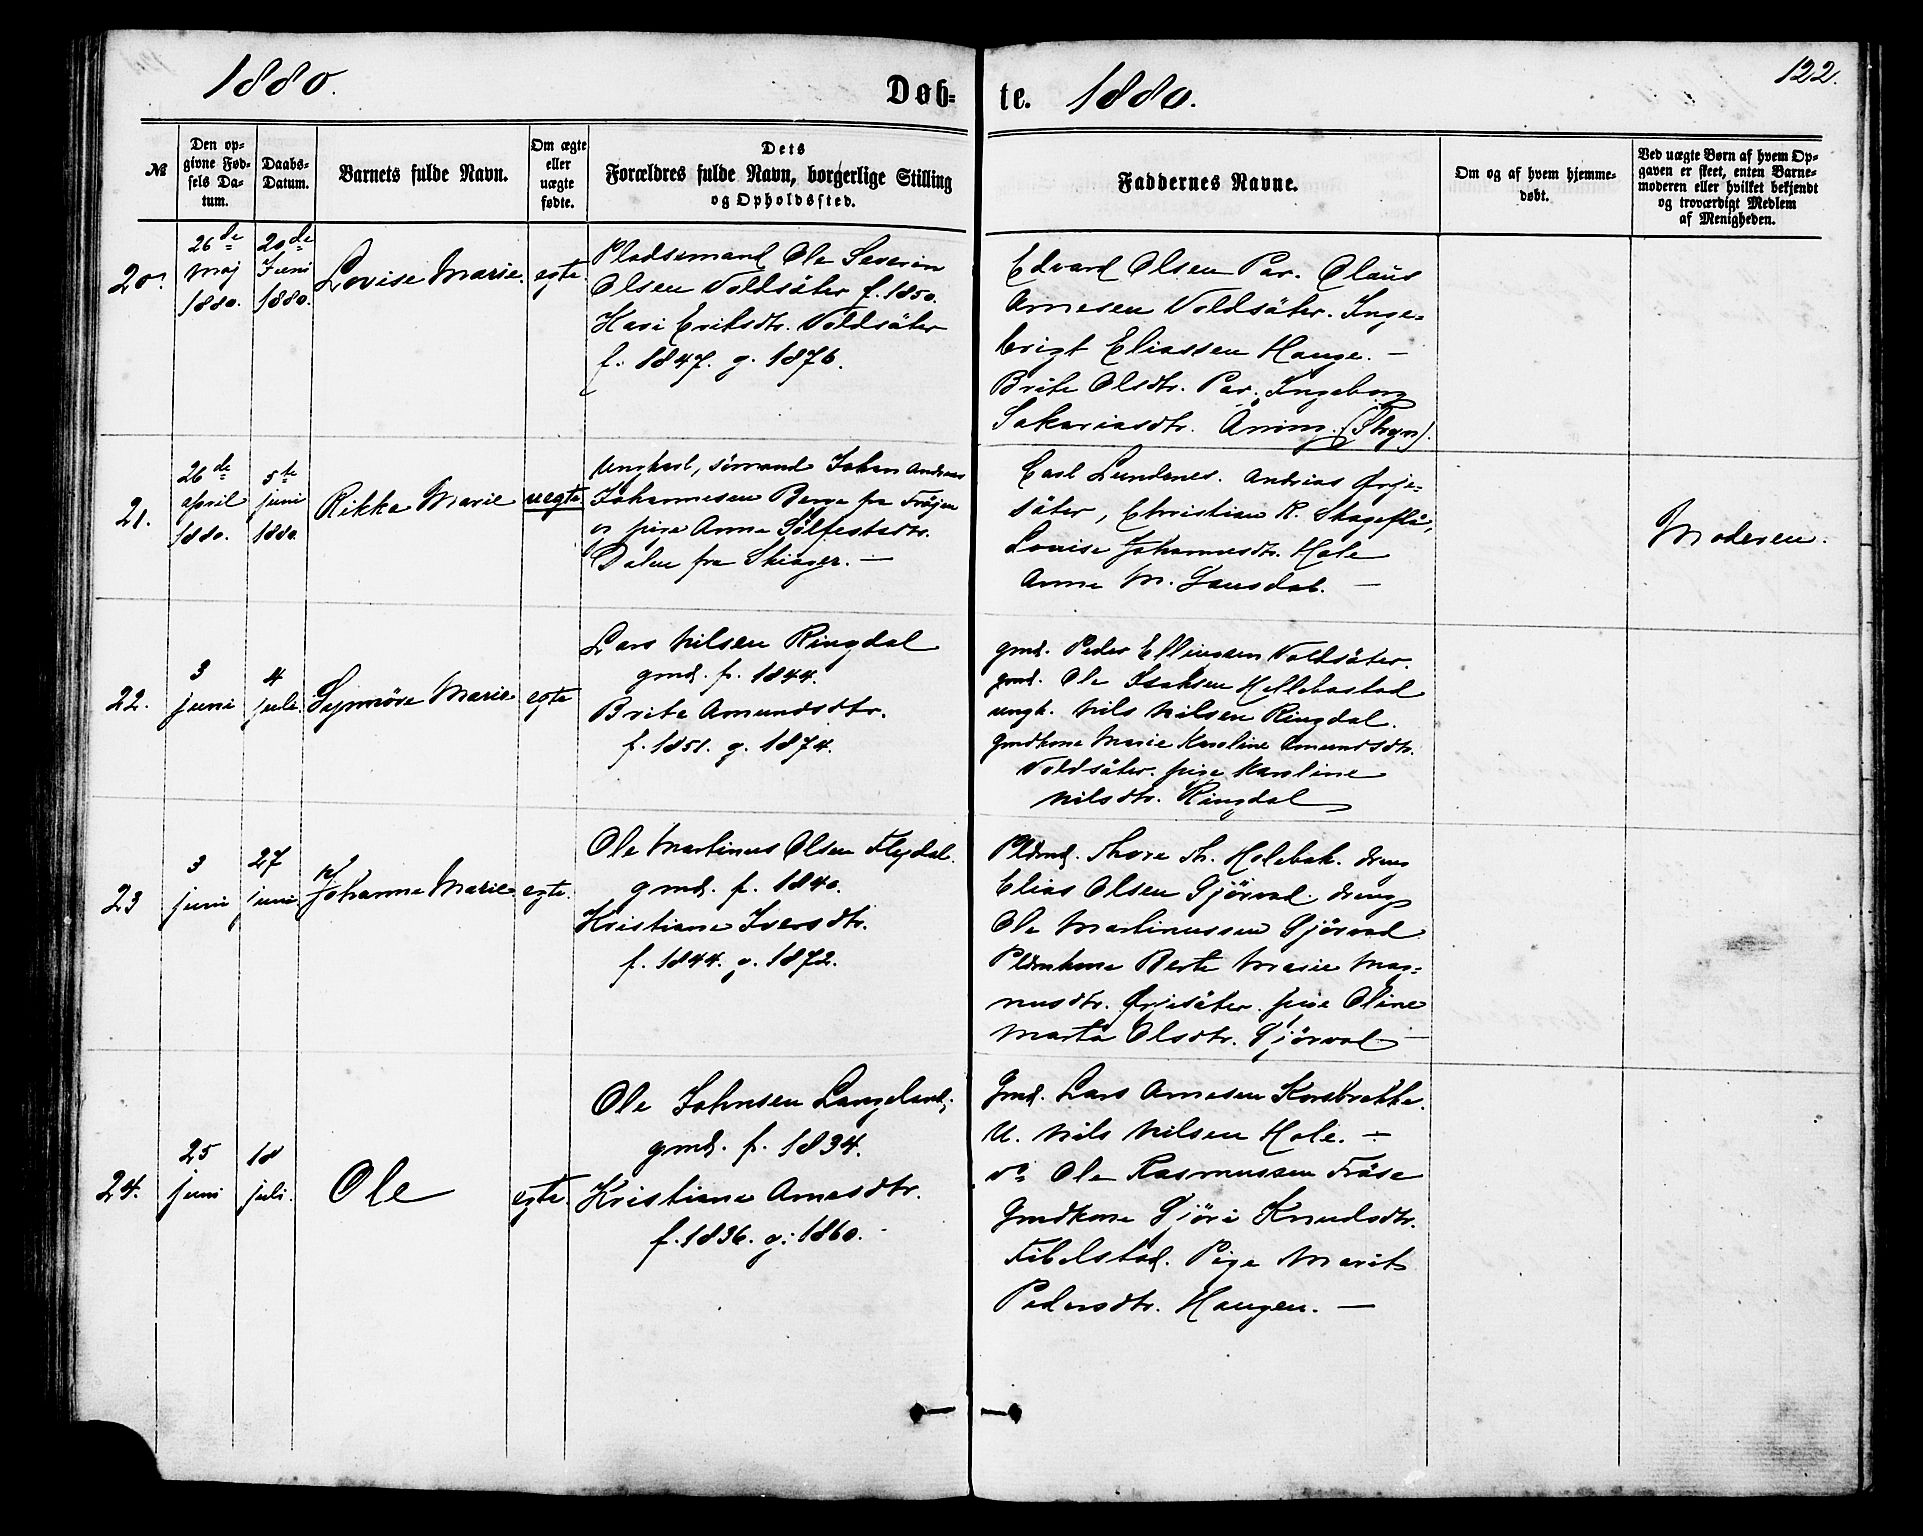 1880.
Døb=
te.
1880.
122.
№
Den op=
givne Fød=
sels Da=
tum.
Daabs=
Datum.
Barnets fulde Navn.
Om ægte
eller
uægte
fødte.
Dets
Forældres fulde Navn, borgerlige Stilling
og Opholdssted.
Faddernes Navne.
Om og af hvem hjemme=
døbt.
Ved uægte Børn af hvem Op=
gaven er skeet, enten Barne=
moderen eller hvilket bekjendt
og troværdigt Medlem
af Menigheden.
20.
26de
Maj
1880.
20de
Juni
1880.
Lovise Marie.
egte.
Pladsemand Ole Severin
Olsen Voldsäter f. 1850.
Kari Eriksdtr. Voldsäter
f. 1847. g. 1876.
Edvard Olsen Par. Olaus
Arnesen Voldsäter. Inge=
brigt Eliassen Hauge. —
Brite Olsdtr. Par. Ingeborg
Sakariasdtr. (Stryn).
21.
26de
april
1880.
5te
juni
1880.
Rikke Marie
uegte
Ungkarl, sömand Johan Andreas
Johannesen Berge fra
og pige Anna Sölfestsdtr.
Dalen fra —
Carl Lundenes. Andrias Ørje=
säter, Christian R. Skageflå,
Lovise Johannesdtr. Hole
Anna M. —
Moderen.
22.
3
juni
4
juli.
Synnöve Marie
egte
Lars Nilsen Ringdal
gmd. f. 1844.
Brite Amundsdtr.
f. 1851. g. 1874.
gmd. Peder Ellingsen Voldsäter.
gmd. Ole Isaksen Hellebostad
ungk. Nils Nilsen Ringdal.
Gmdkone Marie Karoline Amundsdtr.
Voldsäter. pige Karoline
Nilsdtr. Ringdal
23
3
juni
27
juni
Johanne Marie.
egte.
Ole Martinus Olsen Flydal.
gmd. f. 1840.
Kristiane Iversdtr.
f. 1844. g. 1872.
Pldmd. Thore Th. Holebak. dreng
Elias Olsen Gjörvad. dreng
Ole Martinussen Gjörvad
Pldmkone Berte Marie Mag=
nusdtr. Ørjesäter. pige Oline
Marta Olsdtr. Gjörvad —
24.
25
juni
18
juli.
Ole
egte.
Ole Johnsen Langeland;
gmd. f. 1834.
Kristiane Arnesdtr.
f. 1836. g. 1860.
Gmd. Lars Arnesen Korsbrekke.
U. Nils Nilsen Hole. —
do Ole Rasmussen Fröse
Gmdkone Gjöri Knudsdtr.
Fibelstad. Pige Marit
Pedersdtr. Haugen. —